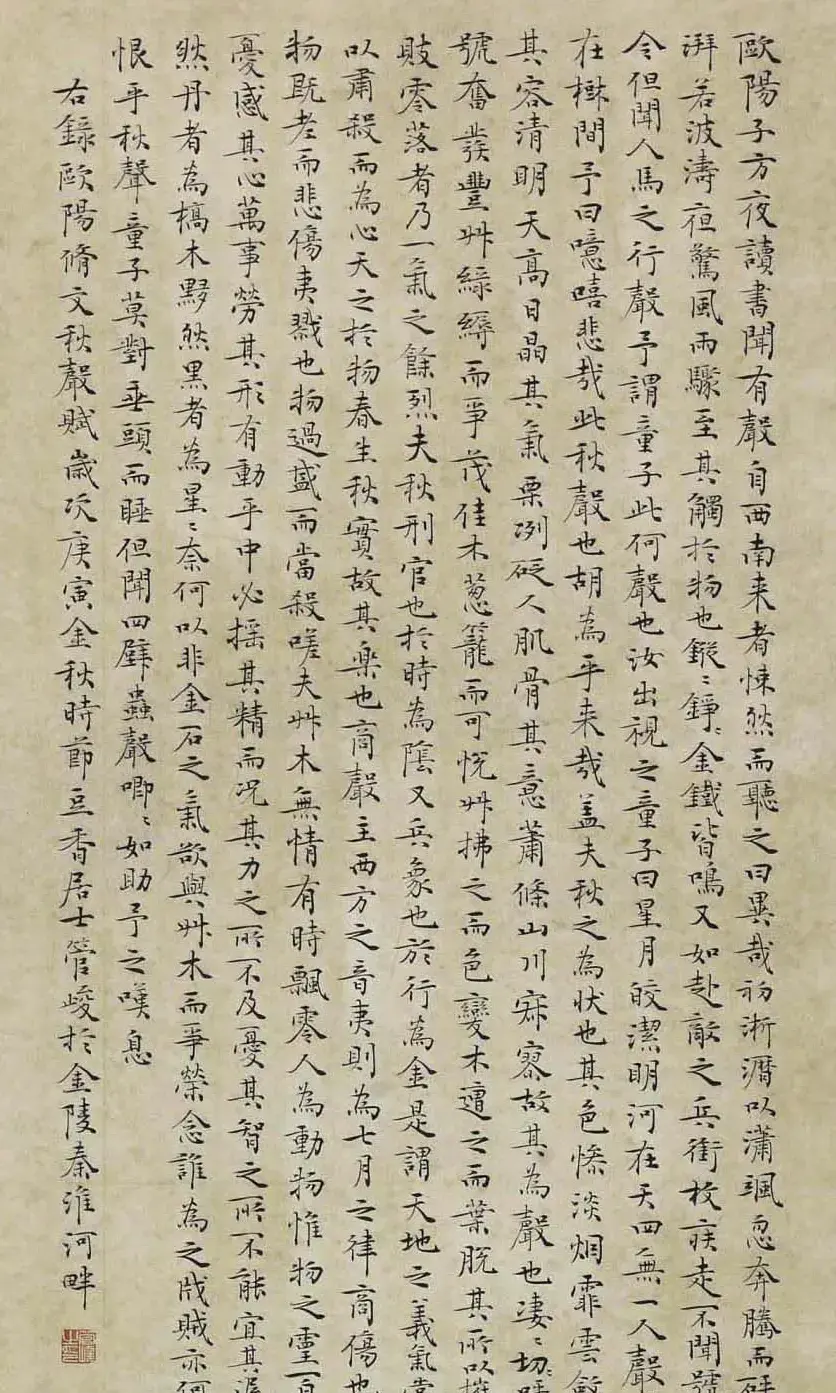 歐陽子方夜讀書聞有聲自西南来者悚然而聽之曰異哉初淅瀝以瀟颯忽奔騰而砰
湃若波濤夜驚風雨驟至其觸於物也鏦〻錚〻金鐵皆鳴又如赴敵之兵銜枚疾走不聞號
令但聞人馬之行聲予謂童子此何聲也汝出視之童子曰星月皎潔明河在天四無人聲
在樹間予曰噫嘻悲哉此秋聲也胡為乎来哉盖夫秋之為狀也其色慘淡烟霏雲斂
其容清明天高日晶其氣栗冽砭人肌骨其意蕭條山川寂寥故其為聲也凄〻切〻呼
號奮發豐艸綠縟而爭茂佳木葱籠而可悅艸拂之而色變木遭之而葉脫其所以摧
敗零落者乃一氣之餘烈夫秋刑官也於時為陰又兵象也於行為金是謂天地之義氣常
以肅殺而為心天之於物春生秋實故其樂也商聲主西方之音夷則為七月之律商傷也
物既老而悲傷夷戮也物過盛而當殺嗟夫艸木無情有時飄零人為動物惟物之靈百
憂感其心萬事勞其形有動乎中必搖其精而况其力之所不及憂其智之所不能宜其渥
然丹者為槁木黟然黑者為星〻奈何以非金石之氣欲與艸木而爭榮念誰為之戕賊亦何
恨乎秋聲童子莫對垂頭而睡但聞四壁蟲聲唧〻如助予之嘆息
右錄歐陽脩文秋聲賦歲次庚寅金秋時節豆香居士管峻於金陵秦淮河畔